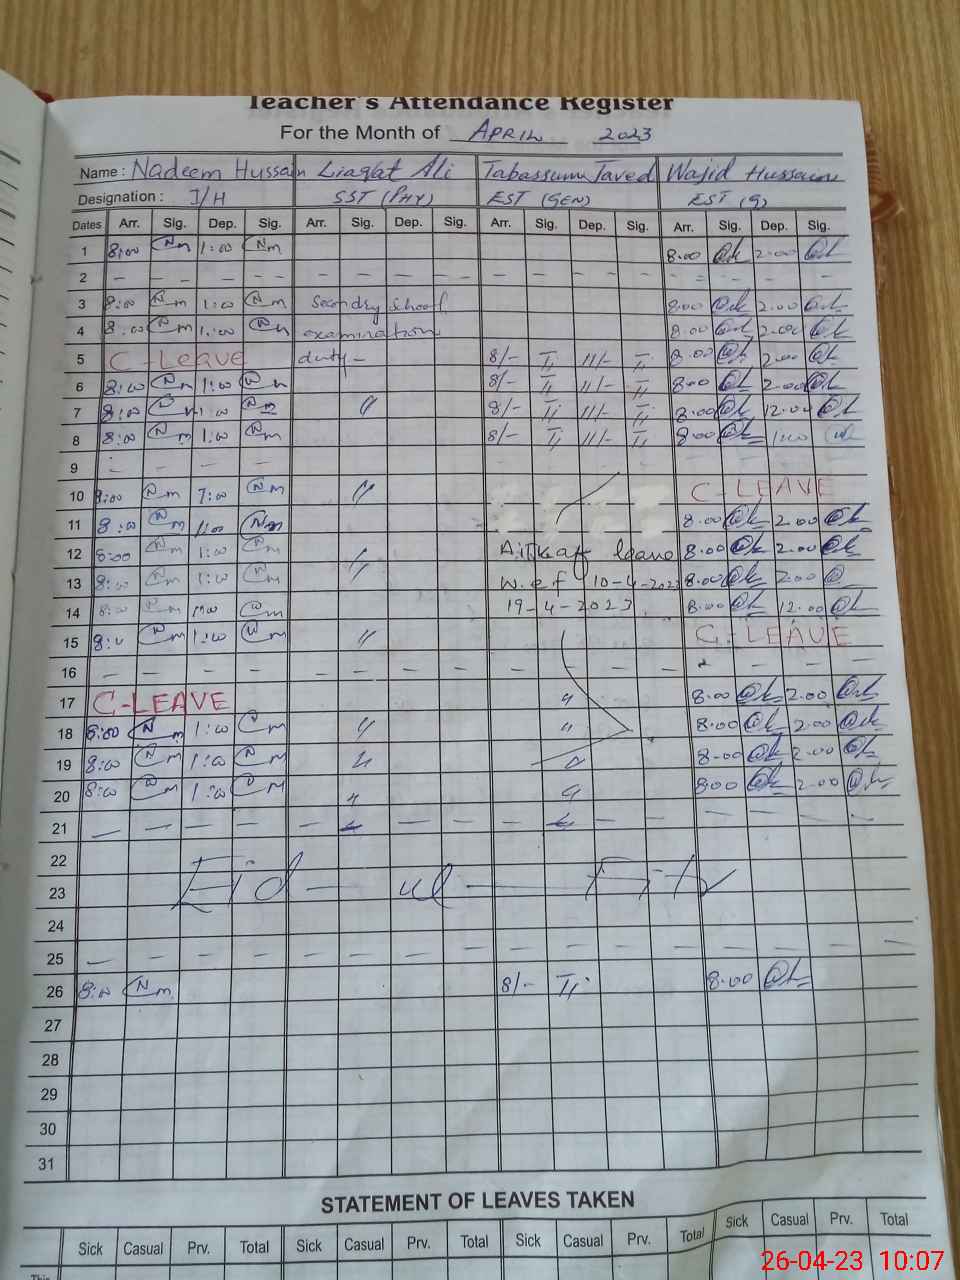 Teacher's Attendance Register
For the Month of APRIL 2023
Name : Nadeem Hussain Liaqat Ali Tabassum Javed Wajid Hussain
Designation : I/H SST (PHY) EST (GEN) EST (G)
Dates Arr. Sig. Dep. Sig. Arr. Sig. Dep. Sig. Arr. Sig. Dep. Sig. Arr. Sig. Dep. Sig.
1 8:00 Nm 1:00 Nm 8.00 2.00
2 – – – – – – – – – – – – – – – –
3 8:00 Nm 1:00 Nm Secondry School 8.00 2.00
4 8:00 Nm 1:00 Nm examination 8.00 2.00
5 C-Leave duty- 8/- 11/- 8.00 2.00
6 8:00 Nm 1:00 Nm 8/- 11/- 8.00 2.00
7 8:00 Nm 1:00 Nm 〃 8/- 11/- 8.00 12.00
8 8:00 Nm 1:00 Nm 8/- 11/- 8.00 1:00
9 – – – –
10 8:00 Nm 1:00 Nm 〃 C-LEAVE
11 8:00 Nm 1:00 Nm 8.00 2.00
12 8:00 Nm 1:00 Nm 〃 Aitkaff leave 8.00 2.00
13 8:00 Nm 1:00 Nm 〃 w.e.f 10-4-2023 8.00 2.00
14 8:00 Nm 1:00 Nm 19-4-2023 8.00 12.00
15 8:00 Nm 1:00 Nm 〃 C-LEAVE
16 – – – – – – – – – – – – – – –
17 C-LEAVE 〃 8.00 2.00
18 8:00 Nm 1:00 Nm 〃 〃 8.00 2.00
19 8:00 Nm 1:00 Nm 〃 〃 8.00 2.00
20 8:00 Nm 1:00 Nm 〃 〃 8.00 2.00
21 – – – – – 〃 – – – 〃 – – – – – –
22
23 Eid – ul – Fitr
24
25 – – – – – – – – – – – – – – – –
26 8:00 Nm 8/- 8.00
27
28
29
30
31
STATEMENT OF LEAVES TAKEN
Sick Casual Prv. Total Sick Casual Prv. Total Sick Casual Prv. Total Sick Casual Prv. Total
This
26-04-23 10:07